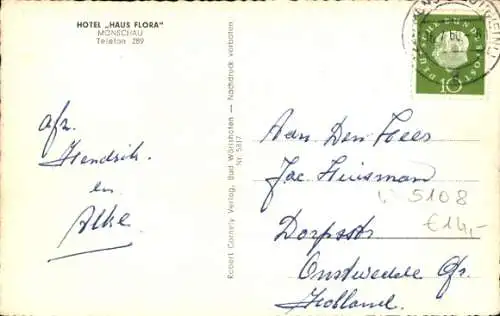 HOTEL „HAUS FLORA"
MONSCHAU
Telefon 289
Afz.
Hendrik.
en
Alke.
Robert Cornely Verlag, Bad Wörishofen — Nachdruck verboten
Nr. 5817
DEUTSCHE BUNDESPOST
10
Aan Den Heer
Jac Huisman
Dorpsstr
Onstwedde Gr.
Holland.
5108
€14,-